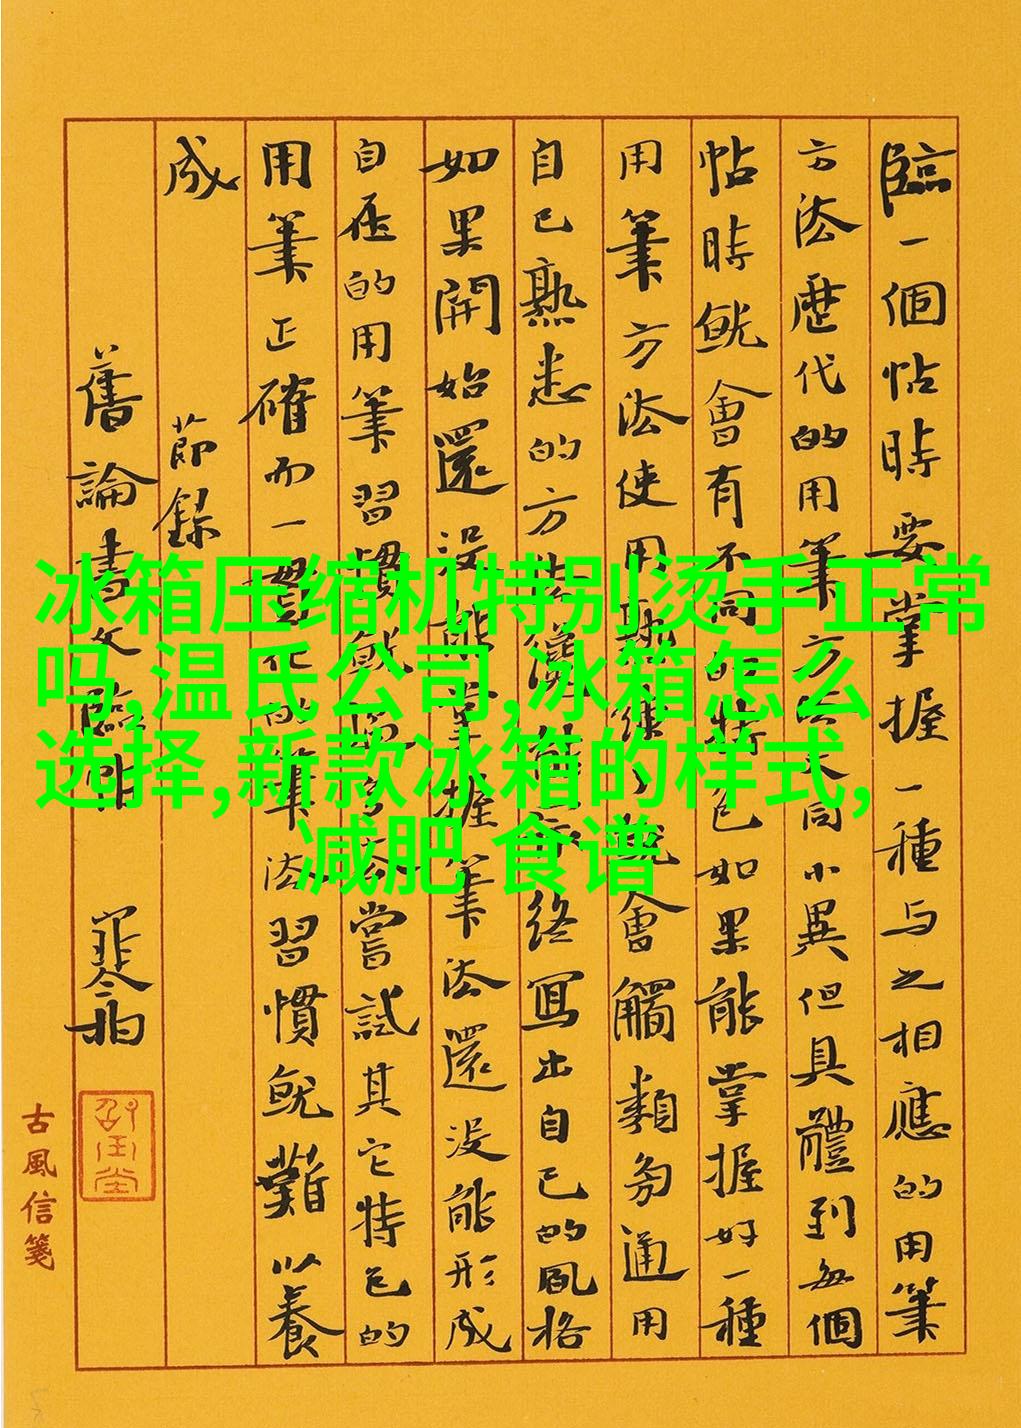 臨一個帖時要掌握一種与之相應的用筆
方法歷代的用筆方法大同小異但具體到每個
帖時就會有不同的特色如果能掌握好一種
用筆方法使用熟練了就會觸類旁通用
自己熟悉的方法終寫出自己的風格
如果開始還没能掌握筆法還没能形成
自在的用筆習慣就嘗試其它特色的
用筆正確而一筆法習慣就難以養
成 節錄
舊論書文臨
古風信箋
冰箱压缩机特别烫手正常
吗,温氏公司,冰箱怎么
选择,新款冰箱的样式,
减肥 食谱